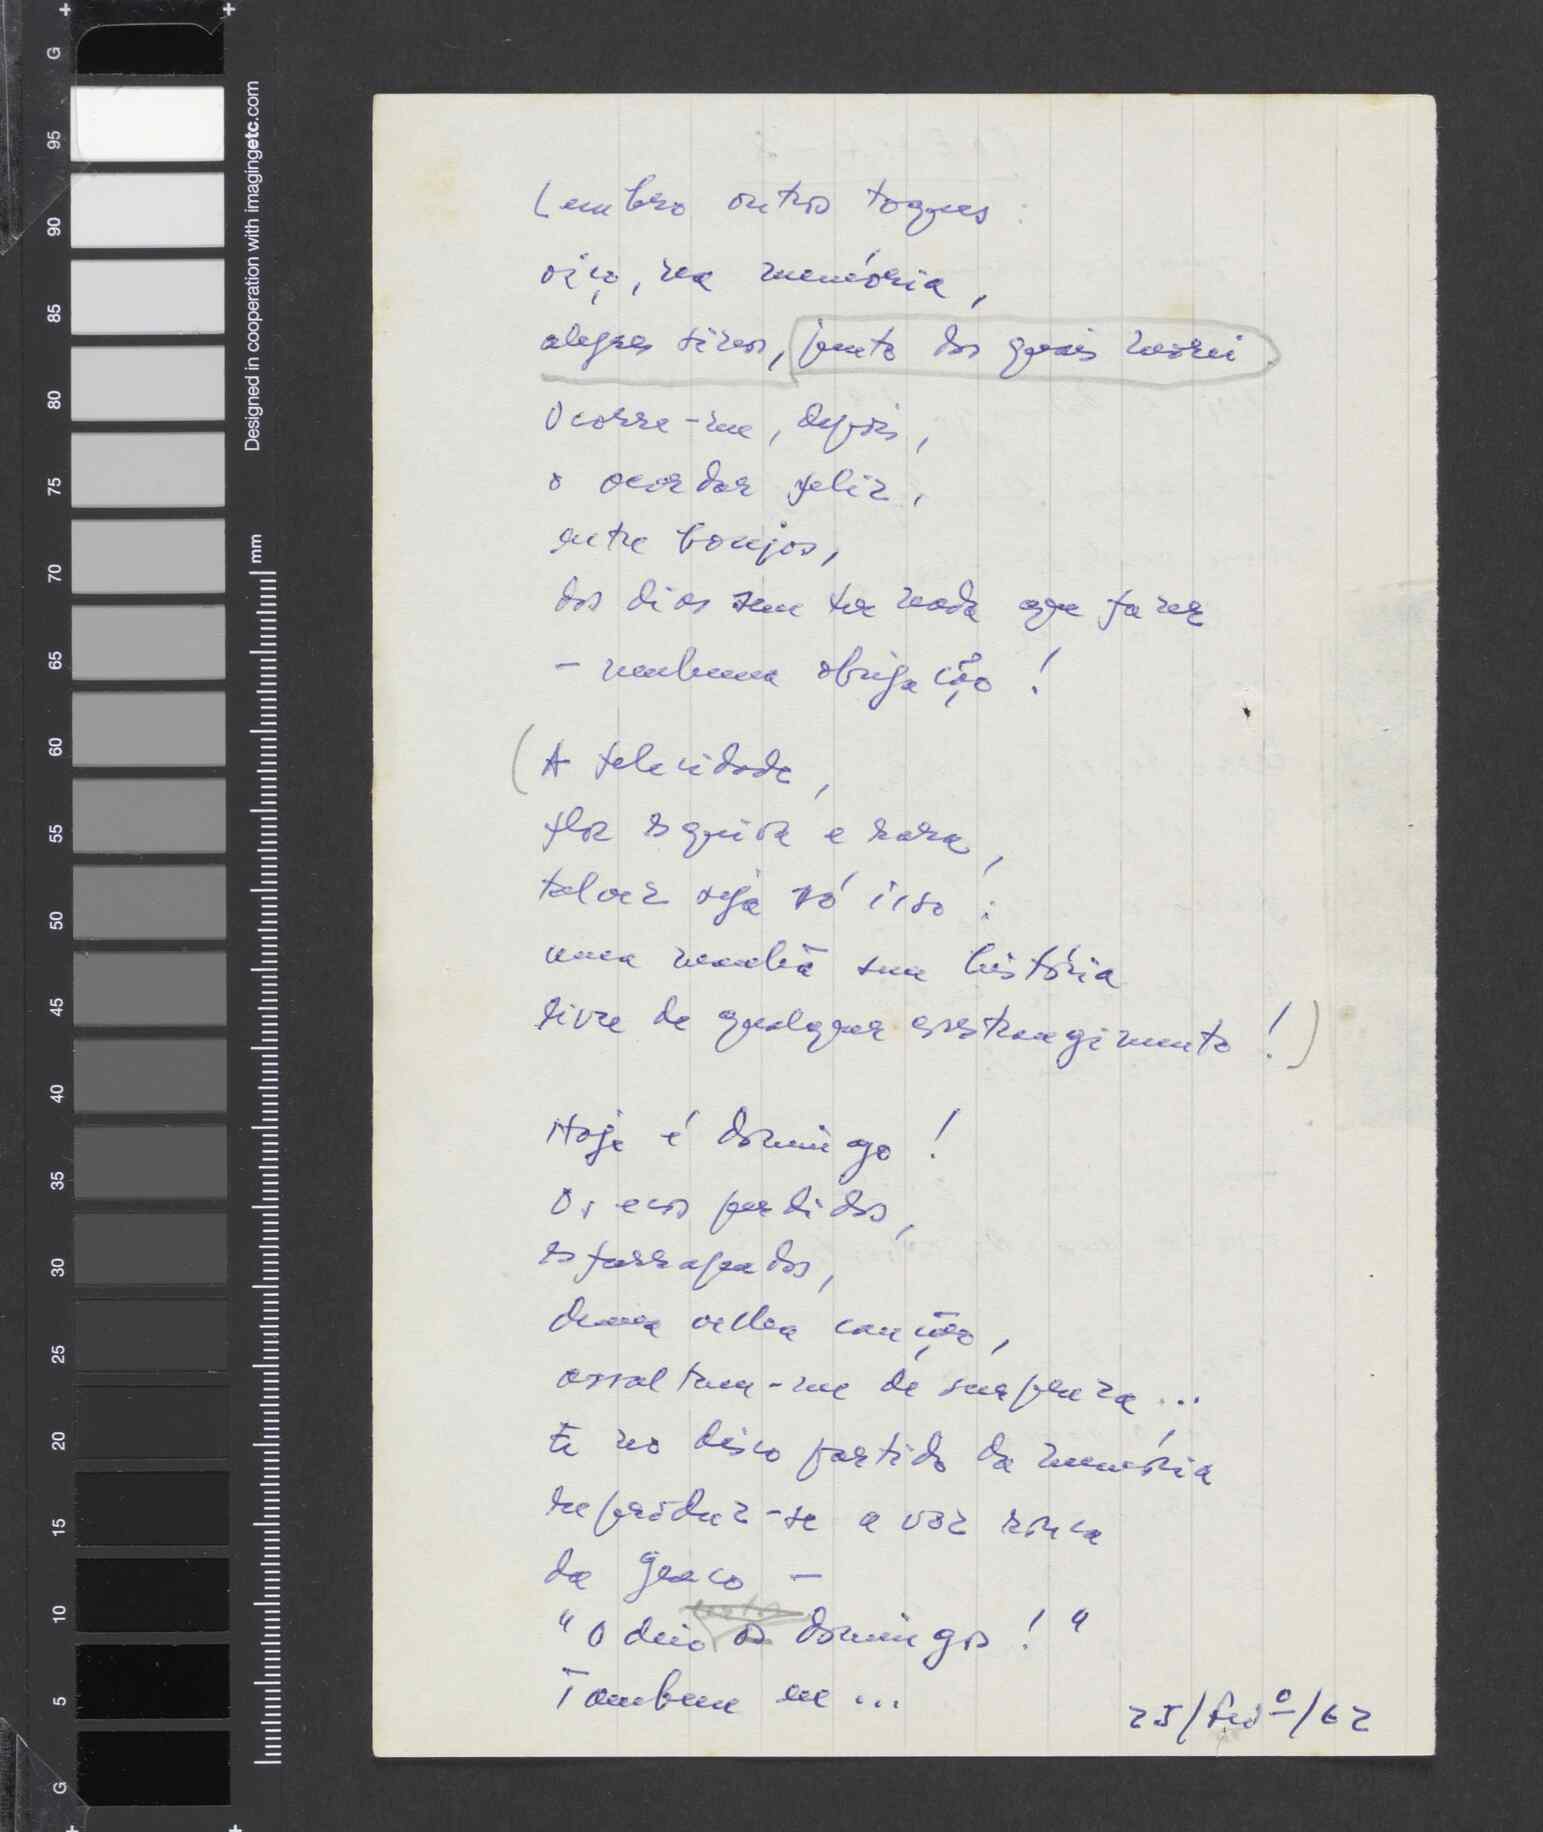 G
95
90
85
80
75
70
65
60
55
50
45
40
35
30
25
20
15
10
5
G
Designed in cooperation with imagingetc.com
mm
Lembro outros toques:
oiço, na memória,
alegres sinos, junto dos quais morei.
Ocorre-me, depois,
o acordar feliz,
entre bocejos,
dos dias sem ter nada que fazer
– nenhuma obrigação!
(A felicidade,
flor esquiva e rara,
talvez seja só isso:
uma manhã sem história
livre de qualquer constrangimento!)
Hoje é domingo!
Os ecos perdidos,
esfarrapados,
duma velha canção,
assaltam-me de surpresa...
E no disco partido da memória
reproduz-se a voz rouca
da Greco –
"Odeio os domingos!"
Também eu...
25/Fevº/62